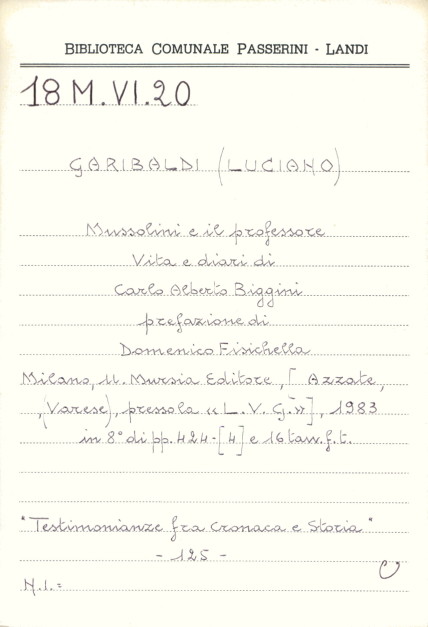 BIBLIOTECA COMUNALE PASSERINI - LANDI
18 M.VI.20
GARIBALDI (LUCIANO)
Mussolini e il professore
Vita e diari di
Carlo Alberto Biggini
prefazione di
Domenico Fisichella
Milano, U. Mursia Editore, [Azzate,
(Varese), presso la «L.V.G.»], 1983
in 8° di pp. 424-[4] e 16 tavv. f.t.
"Testimonianze fra Cronaca e Storia"
- 125 -
N.I.=